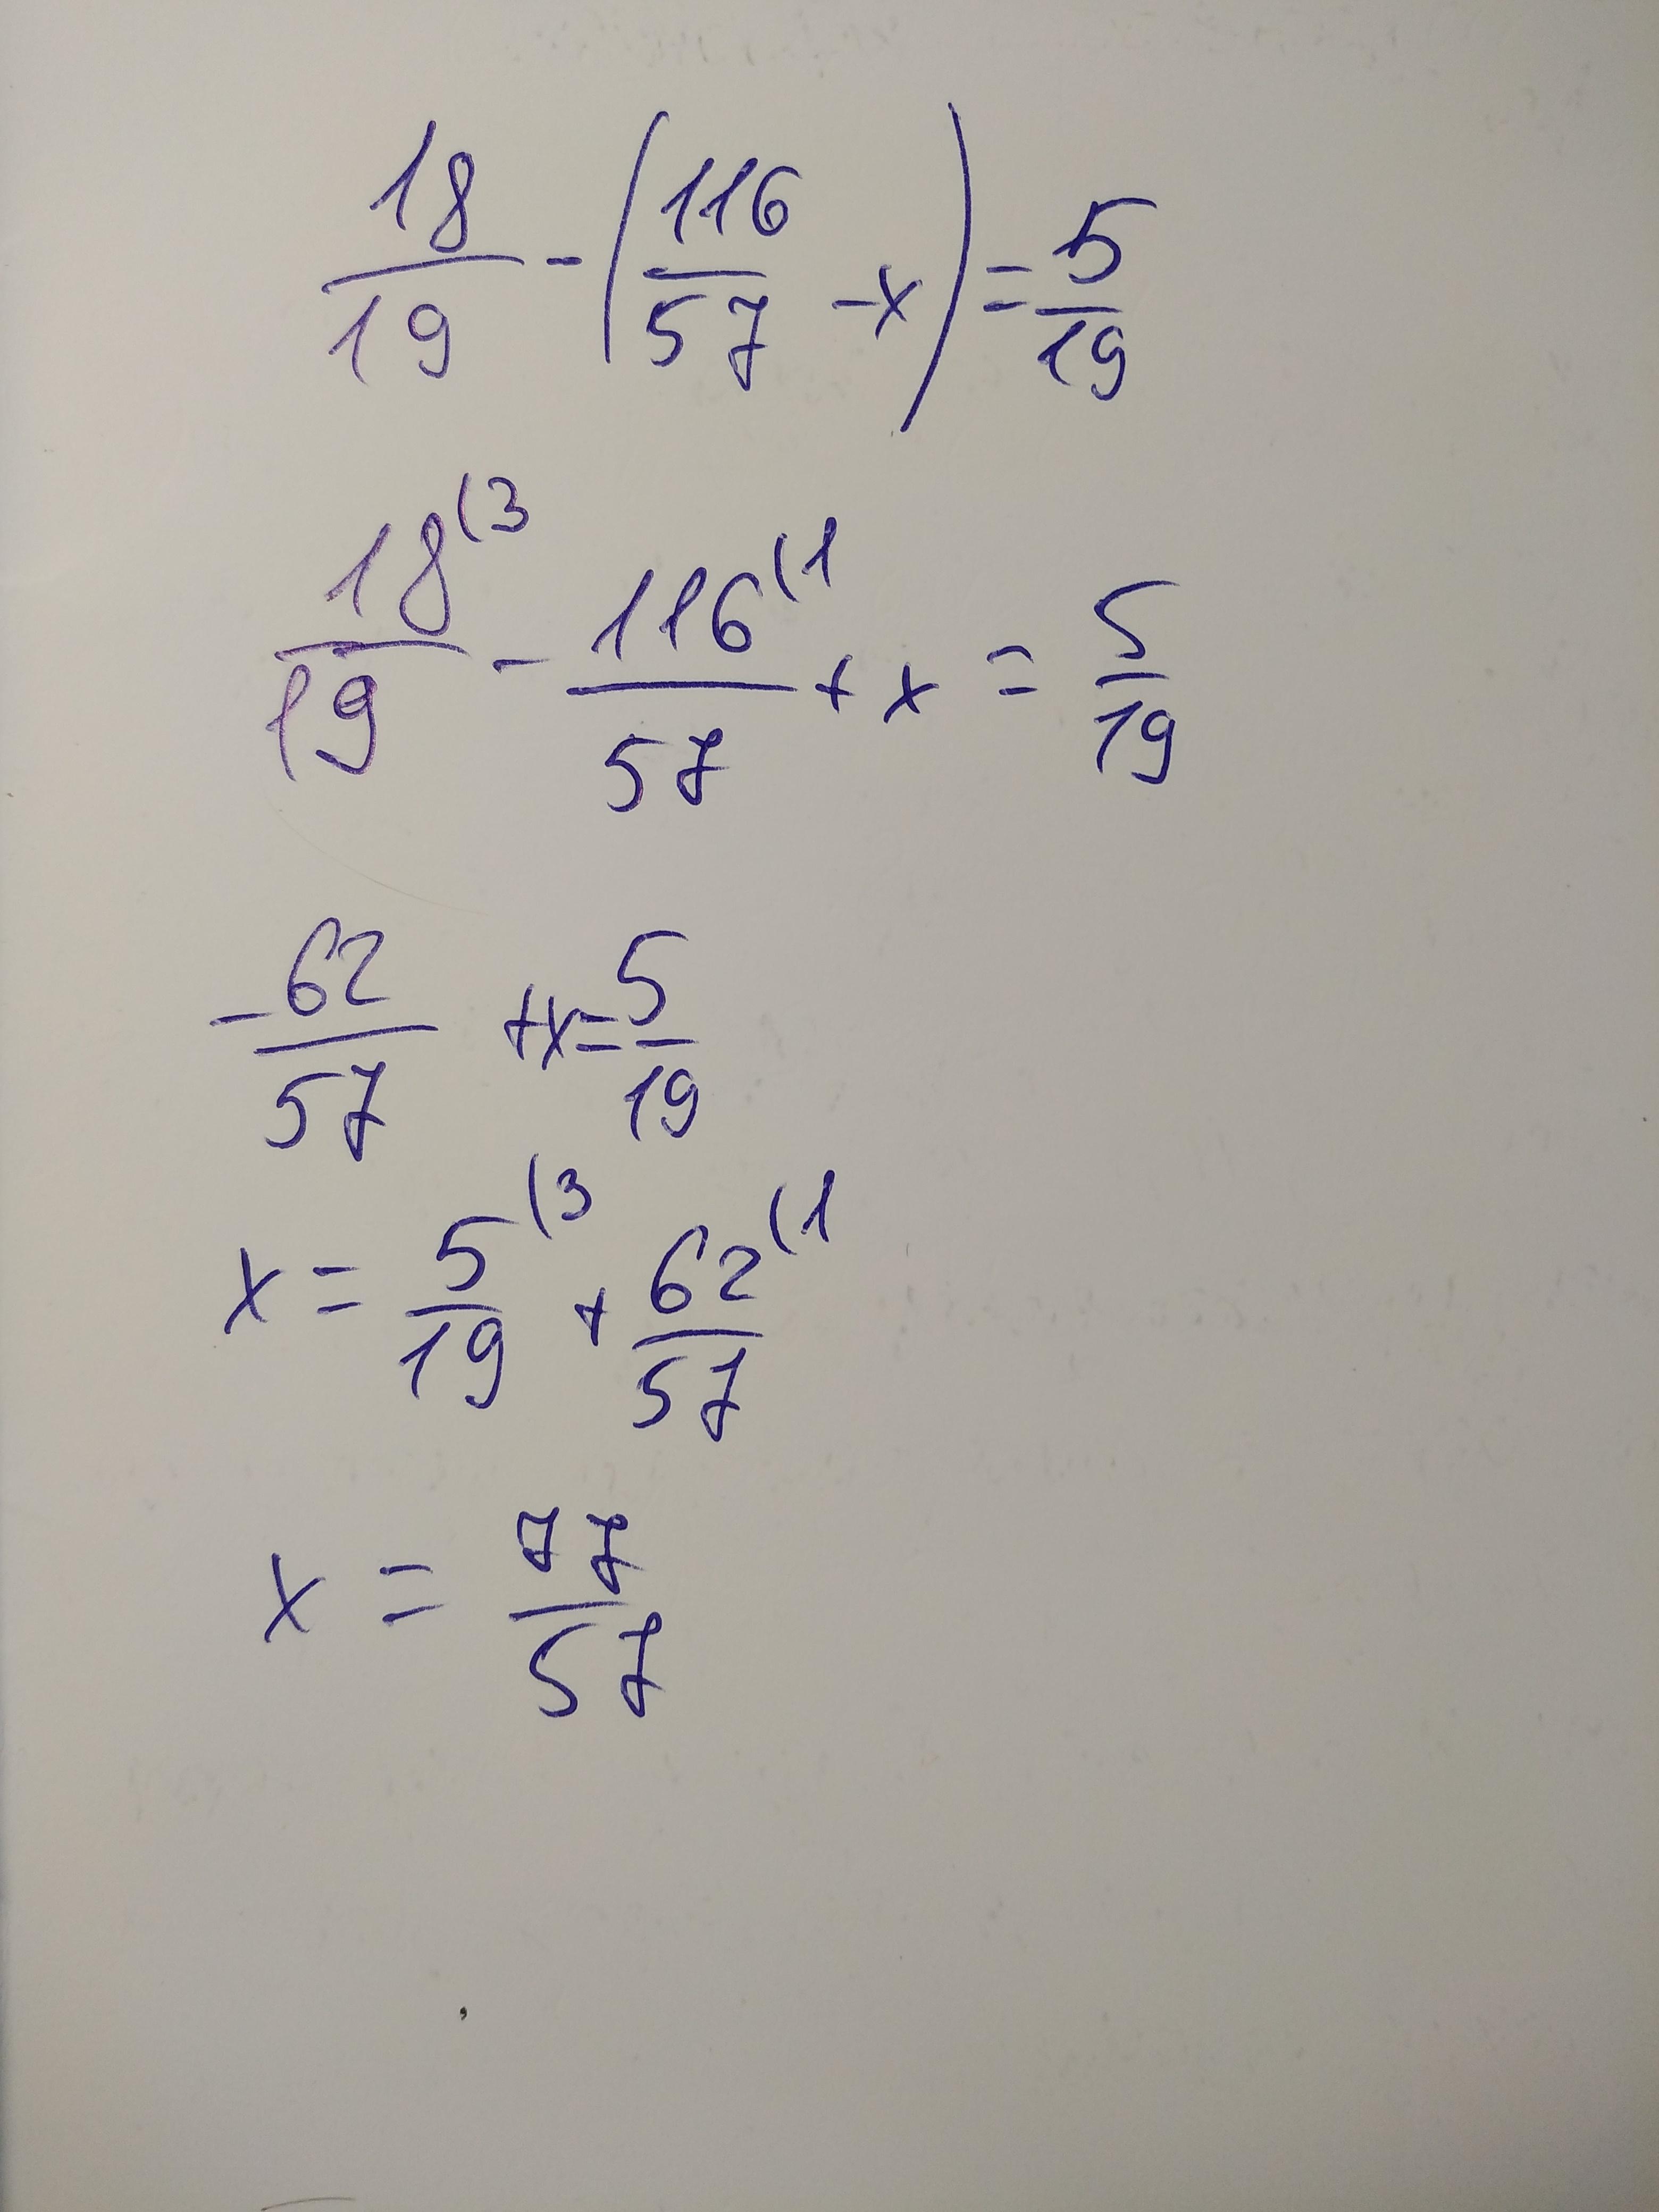 18/19 - (116/57 - x) = 5/19
18(3/19 - 116(1/57 + x = 5/19
-62/57 + x = 5/19
x = 5(3/19 + 62(1/57
x = 77/57